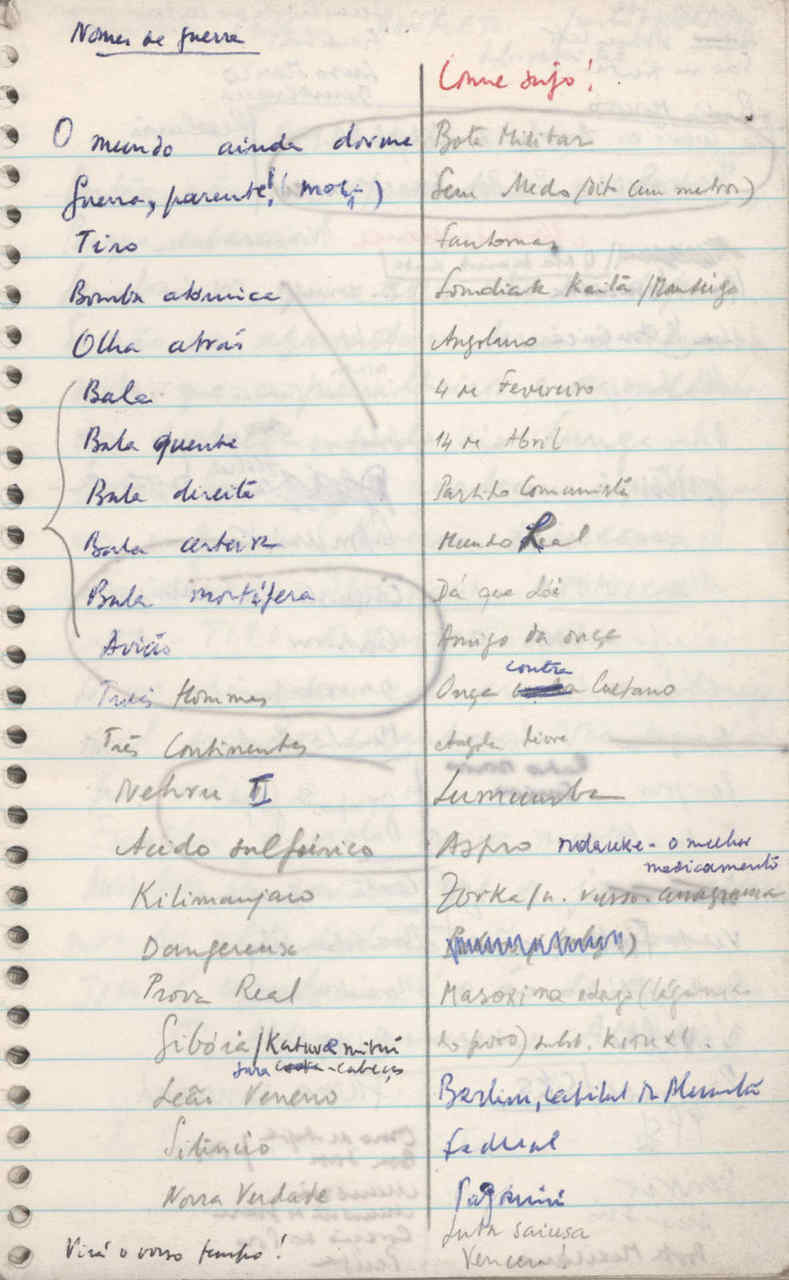 Nomes de guerra
O mundo ainda dorme
Guerra, parente!
Tiro
Bomba atómica
Olha atrás
Bala
Bala quente
Bala direita
Bala certeira
Bala mortífera
Avião
Três Hommes
Três Continentes
Nehru II
Acido sulfúrico
Kilimanjaro
Dangereux
Prova Real
Gibóia/Katuva mitui
fura cabeças
Leão Veneno
Silêncio
Nossa Verdade
Virá o vosso tempo!
Come sujo!
Bota Militar
Sem Medo /Dito Cem metros)
Fantomas
Soundiata Keita /
Angolano
4 de Fevereiro
14 de Abril
Partido Comunista
Mundo Real
Dá que dói
Amigo da onça
Onça contra Caetano
Angola livre
Lumumba
Aspro ndauke - o melhor
medicamento
Zorka/n. russo. anagrama
Masoxima (lágrimas
do povo) subst.
Berlim, capital da Alemanha
Federal
Paganini
Luta